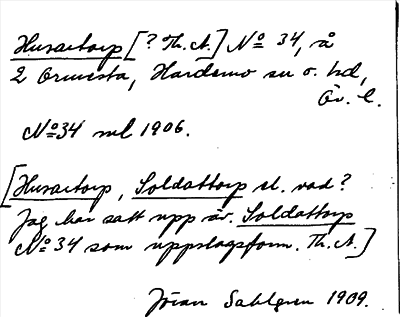 Husartorp [? Th. A.] No 34, å
2 Ormesta, Hardemo sn o. hd,
Ör. l.
No 34 ml 1906.
[Husartorp, Soldattorp el. vad?
Jag har satt upp är. Soldattorp
No 34 som uppslagsform. Th. A.]
Jöran Sahlgren 1909.